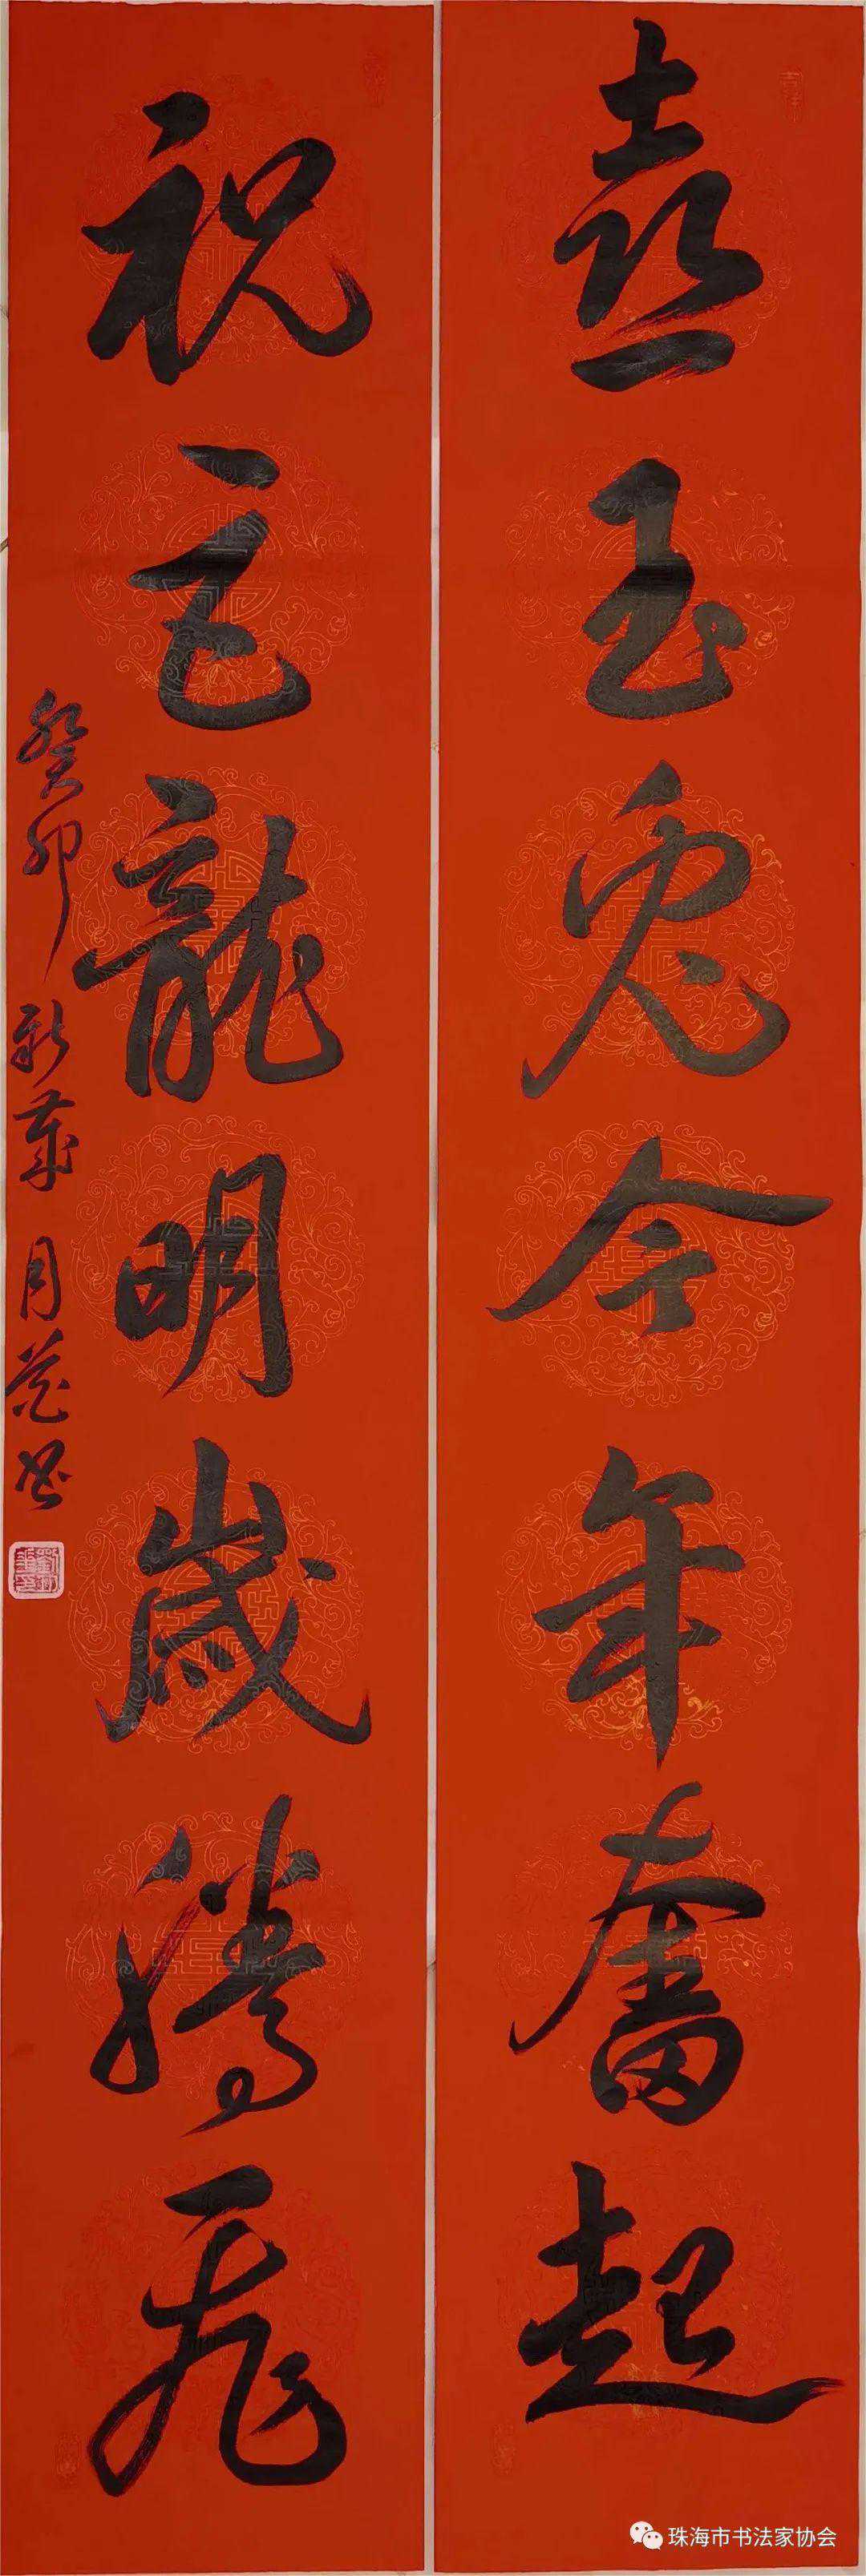 喜玉兔今年奮起
祝巨龍明歲騰飛
癸卯新歲月華书
珠海市书法家协会